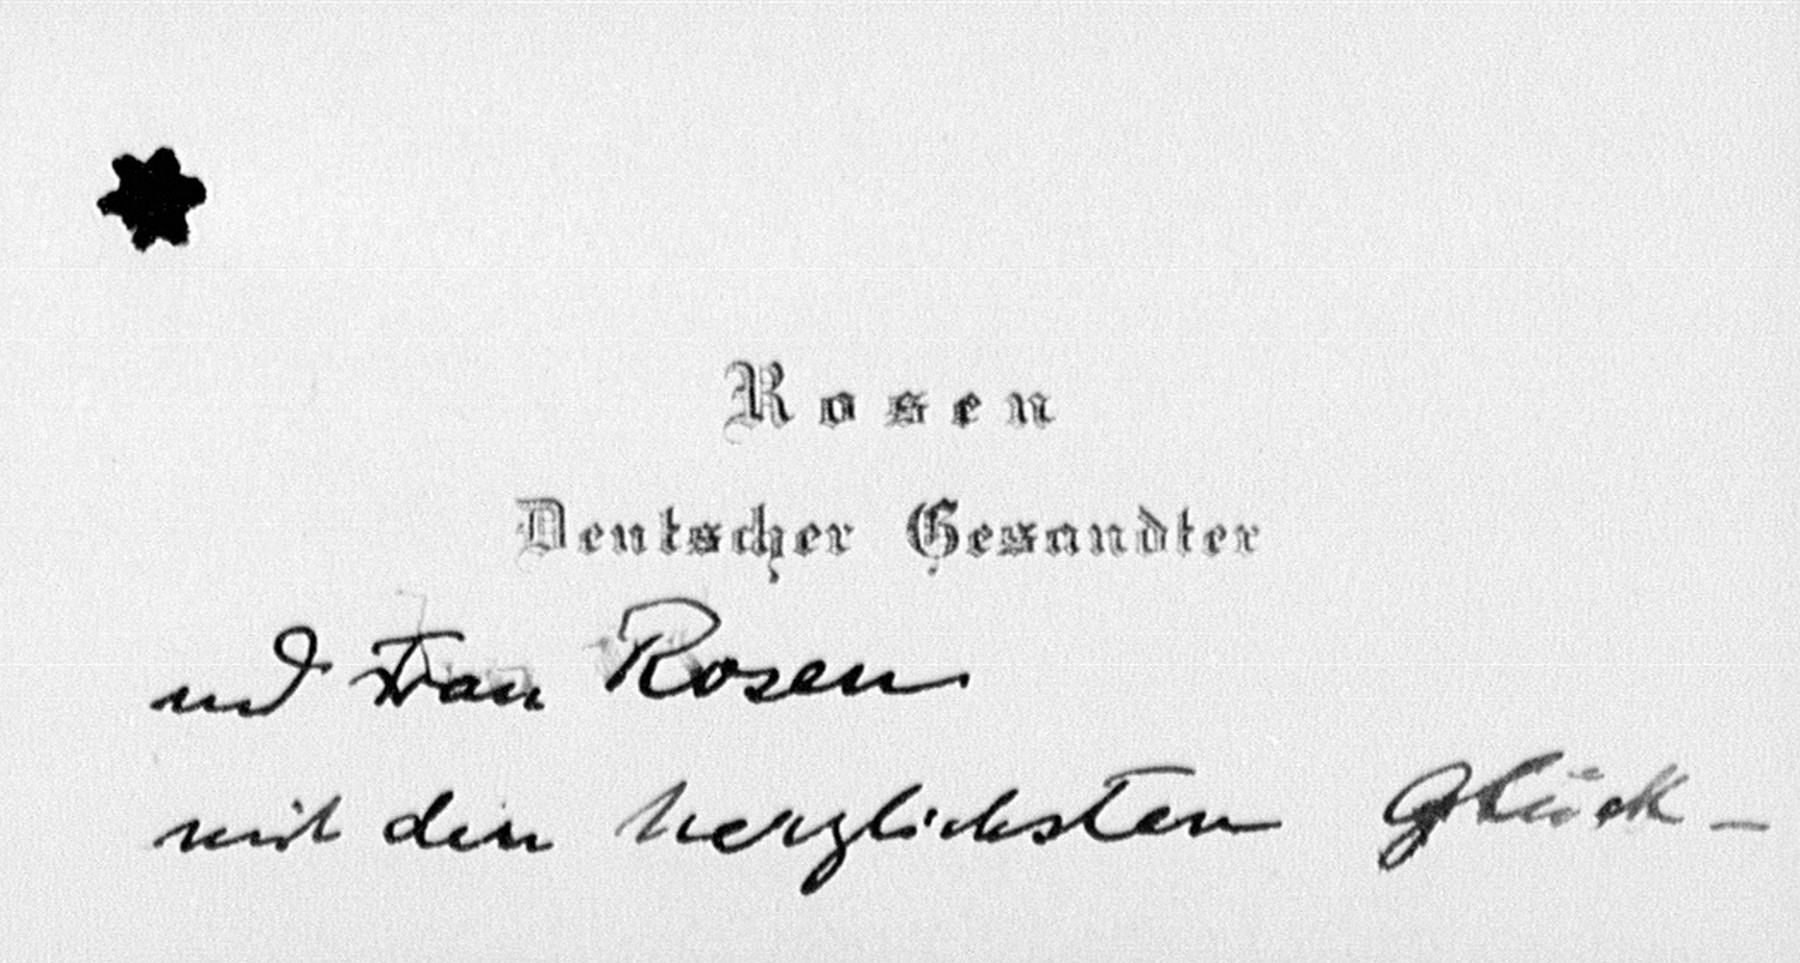 Rosen
Deutscher Gesandter
und Frau Rosen
mit den herzlichsten Glück-